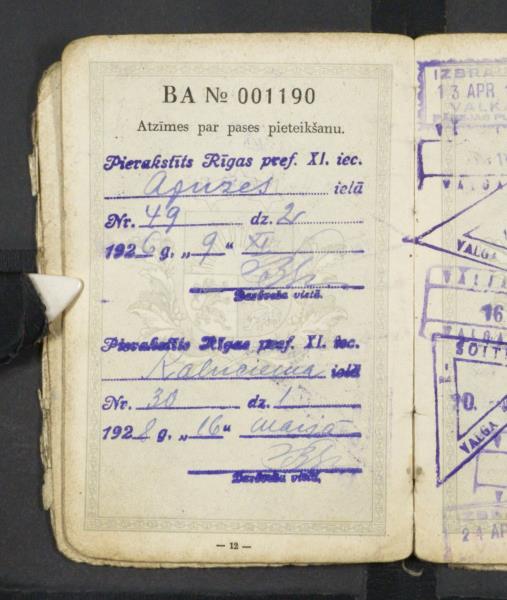 BA № 001190
Atzīmes par pases pieteikšanu.
Pierakstīts Rīgas pref. XI. iec.
Agnzes ielā
Nr. 49 dz. 2
1926 g. „9“ XI
Darbveža vietā.
Pierakstīts Rīgas pref. XI. iec.
Kalnciema ielā
Nr. 30 dz. 1
1928 g. „16“ maijā
Darbveža vietā.
— 12 —
IZBRAU
13 APR 1
VALKA
VALGA
VALGA
16
VALGA
20.
VALGA
24 AP